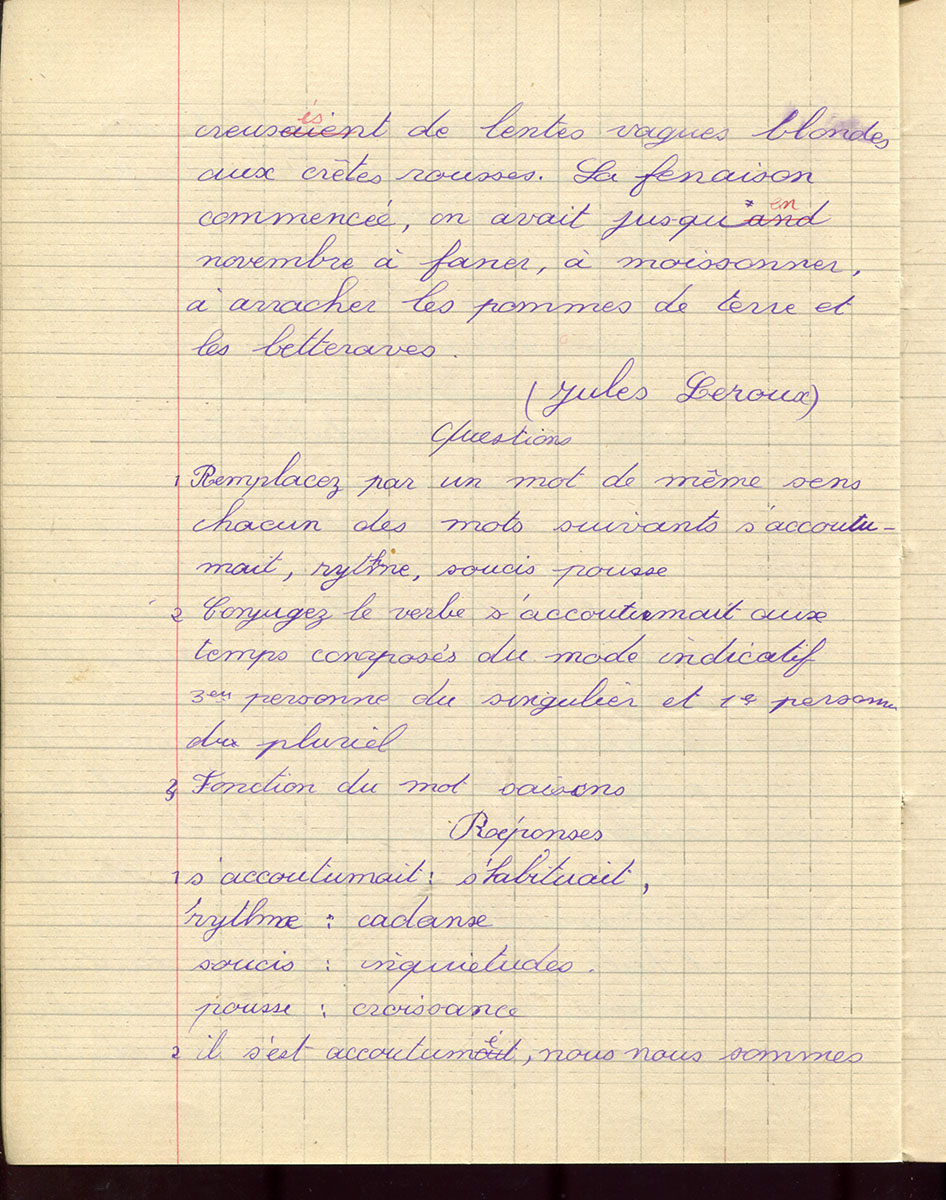 creusaient és de lentes vagues blondes
aux crêtes rousses. La fenaison
commencée, on avait jusqu'and en
novembre à faner, à moissonner,
à arracher les pommes de terre et
les betteraves.
(Jules Leroux)
Questions
1 Remplacez par un mot de même sens
chacun des mots suivants s'accoutu-
mait, rythme, soucis pousse
2 Conjugez le verbe s'accoutumait aux
temps composés du mode indicatif
3em personne du singulier et 1e personne
du pluriel
3 Fonction du mot saisons
Réponses
1 s'accoutumait : s'habituait,
rythme : cadanse
soucis : inquiétudes.
pousse : croissance
2 il s'est accoutumait é, nous nous sommes